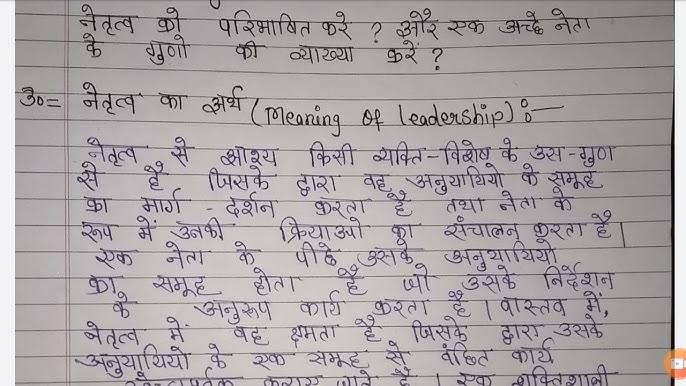 नेतृत्व को परिभाषित करें ? और एक अच्छे नेता
के गुणो की व्याख्या करें ?
उ०= नेतृत्व का अर्थ (Meaning of leadership):—
नेतृत्व से आश्य किसी व्यक्ति-विशेष के उस-गुण
से है जिसके द्वारा वह अनुयायियो के समूह
का मार्ग-दर्शन करता है तथा नेता के
रूप में उनकी क्रियाओ का संचालन करता है।
एक नेता के पीछे उसके अनुयायियो
का समूह होता है जो उसके निर्देशन
के अनुरूप कार्य करता है। वास्तव में,
नेतृत्व में वह क्षमता है जिसके द्वारा उसके
अनुयायियो के एक समूह से वंछित कार्य
कराए जाते है। एक